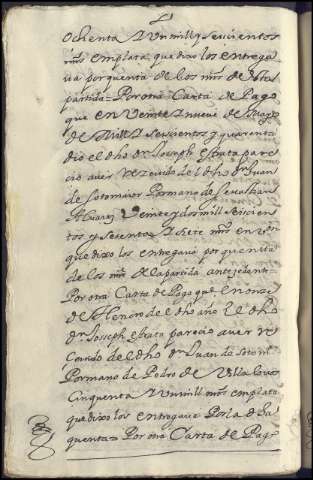 ochenta y un mill y seiscientos
mrs en plata que dixo los entrega
va por quenta de los mrs de esta
partida = Por otra Carta de Pago
que en Veinte y nueve de Mayo
de Mill y seiscientos y quarenta
dio el dho Dr Joseph estrata pare
cio aver rezevido del dho Dr Juan
de sotomaior Por mano de
Alvarez Veinte y dos mill seiscien
tos y setenta y siete mrs en von
que dixo los entregava por quenta
de los mrs de la partida antezedente
Por otra Carta de Pago que en onze
de Henero de el dho año el dho
Dr Joseph estrata parecio aver re
cevido de el dho Dr Juan de sotomor
Por mano de Pedro de Villa
Cinquenta y un mill mrs en plata
que dixo los entregava Por la dha
quenta = Por otra Carta de Pago